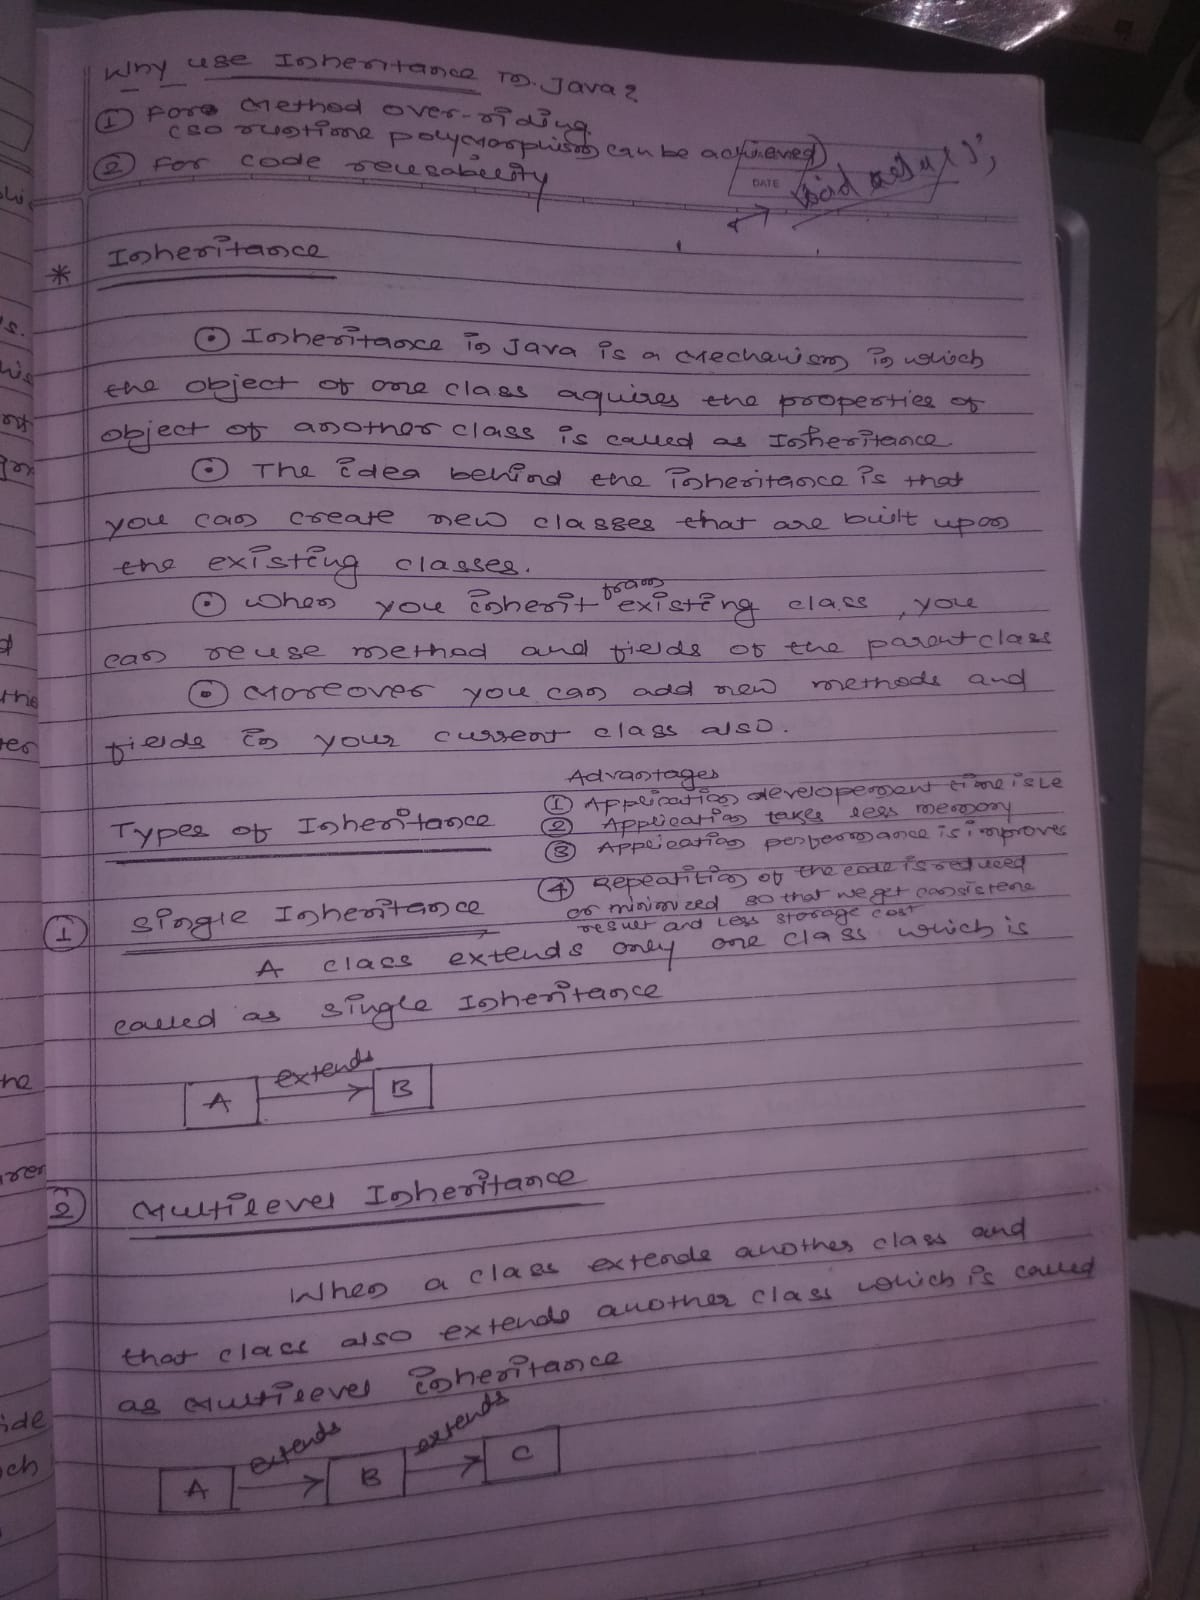 Why use Inheritance In Java?
① For Method over-riding
(so runtime polymorphism can be achieved)
② For code reusability
DATE
void
* Inheritance
⊙ Inheritance in Java is a Mechanism in which
the object of one class aquires the properties of
object of another class is called as Inheritance
⊙ The idea behind the inheritance is that
you can create new classes that are built upon
the existing classes.
⊙ When you inherit from existing class, you
can reuse method and fields of the parent class
⊙ Moreover you can add new methods and
fields in your current class also.
Types of Inheritance
Advantages
① Application developement time is Le
② Application takes less memory
③ Application performance is improves
④ Repeatition of the code is reduced
or minimized so that we get consistene
result and Less storage cost
① Single Inheritance
A class extends only one class which is
called as single Inheritance
A extends B
② Multilevel Inheritance
When a class extends another class and
that class also extends another class which is called
as Multilevel inheritance
A extends B extends C
s.
his
the
ter
he
ide
ch